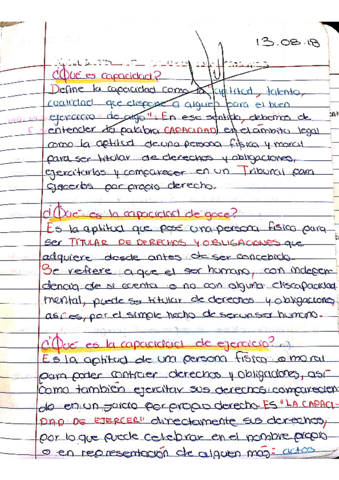 13.08.18
¿Qué es capacidad?
Define la capacidad como la "aptitud, talento,
cualidad que dispone a alguien para el buen
ejercicio de algo". En ese sentido, debemos de
entender la palabra CAPACIDAD en el ámbito legal
como la aptitud de una persona física y moral
para ser titular de derechos y obligaciones,
ejercitarlos y comparecer en un Tribunal para
ejercerlos por propio derecho.
¿Qué es la capacidad de goce?
Es la aptitud que posé una persona física para
ser TITULAR DE DERECHOS Y OBLIGACIONES que
adquiere desde antes de ser concebido.
Se refiere a que el ser humano, con indepen
dencia de si cuenta o no con alguna discapacidad
mental, puede ser titular de derechos y obligaciones
así es, por el simple hecho de ser un ser humano.
¿Qué es la capacidad de ejercicio?
Es la aptitud de una persona física o moral
para poder contraer derechos y obligaciones, así
como también ejercitar sus derechos comparecien
do en un juicio por propio derecho. ES "LA CAPACI
DAD DE EJERCER" directamente sus derechos,
por lo que puede celebrar en el nombre propio
o en representación de alguien más: actos